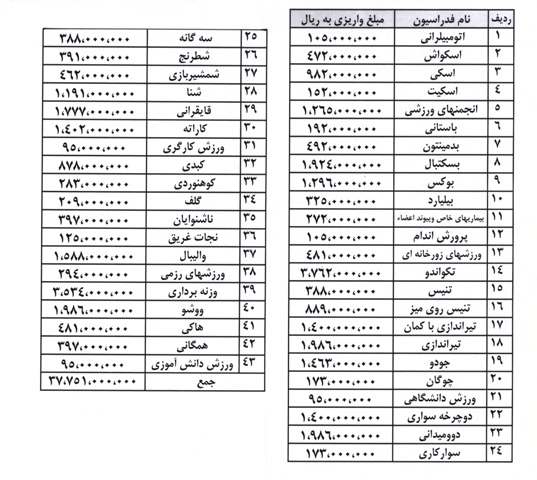 ردیف نام فدراسیون مبلغ واریزی به ریال
۱ اتومبیلرانی ۱۰۵،۰۰۰،۰۰۰
۲ اسکواش ۴۷۲،۰۰۰،۰۰۰
۳ اسکی ۹۸۲،۰۰۰،۰۰۰
۴ اسکیت ۱۵۲،۰۰۰،۰۰۰
۵ انجمنهای ورزشی ۱،۲۶۵،۰۰۰،۰۰۰
۶ باستانی ۱۹۲،۰۰۰،۰۰۰
۷ بدمینتون ۴۹۲،۰۰۰،۰۰۰
۸ بسکتبال ۱،۹۲۴،۰۰۰،۰۰۰
۹ بوکس ۱،۲۹۶،۰۰۰،۰۰۰
۱۰ بیلیارد ۳۲۵،۰۰۰،۰۰۰
۱۱ بیماریهای خاص وپیوند اعضاء ۲۷۲،۰۰۰،۰۰۰
۱۲ پرورش اندام ۱۰۵،۰۰۰،۰۰۰
۱۳ ورزشهای زورخانه ای ۴۸۱،۰۰۰،۰۰۰
۱۴ تکواندو ۳،۷۶۲،۰۰۰،۰۰۰
۱۵ تنیس ۳۸۸،۰۰۰،۰۰۰
۱۶ تنیس روی میز ۸۸۹،۰۰۰،۰۰۰
۱۷ تیراندازی با کمان ۱،۴۰۰،۰۰۰،۰۰۰
۱۸ تیراندازی ۱،۹۸۶،۰۰۰،۰۰۰
۱۹ جودو ۱،۴۶۳،۰۰۰،۰۰۰
۲۰ چوگان ۱۷۳،۰۰۰،۰۰۰
۲۱ ورزش دانشگاهی ۹۵،۰۰۰،۰۰۰
۲۲ دوچرخه سواری ۱،۴۰۰،۰۰۰،۰۰۰
۲۳ دوومیدانی ۱،۹۸۶،۰۰۰،۰۰۰
۲۴ سوارکاری ۱۷۳،۰۰۰،۰۰۰
۲۵ سه گانه ۳۸۸،۰۰۰،۰۰۰
۲۶ شطرنج ۳۹۱،۰۰۰،۰۰۰
۲۷ شمشیربازی ۴۶۲،۰۰۰،۰۰۰
۲۸ شنا ۱،۱۹۱،۰۰۰،۰۰۰
۲۹ قایقرانی ۱،۷۷۷،۰۰۰،۰۰۰
۳۰ کاراته ۱،۴۰۲،۰۰۰،۰۰۰
۳۱ ورزش کارگری ۹۵،۰۰۰،۰۰۰
۳۲ کبدی ۸۷۸،۰۰۰،۰۰۰
۳۳ کوهنوردی ۲۸۳،۰۰۰،۰۰۰
۳۴ گلف ۲۰۹،۰۰۰،۰۰۰
۳۵ ناشنوایان ۳۹۷،۰۰۰،۰۰۰
۳۶ نجات غریق ۱۲۵،۰۰۰،۰۰۰
۳۷ والیبال ۱،۵۸۸،۰۰۰،۰۰۰
۳۸ ورزشهای رزمی ۲۹۴،۰۰۰،۰۰۰
۳۹ وزنه برداری ۳،۵۳۴،۰۰۰،۰۰۰
۴۰ ووشو ۱،۹۸۶،۰۰۰،۰۰۰
۴۱ هاکی ۴۸۱،۰۰۰،۰۰۰
۴۲ همگانی ۳۹۷،۰۰۰،۰۰۰
۴۳ ورزش دانش آموزی ۹۵،۰۰۰،۰۰۰
جمع ۳۷،۷۵۱،۰۰۰،۰۰۰